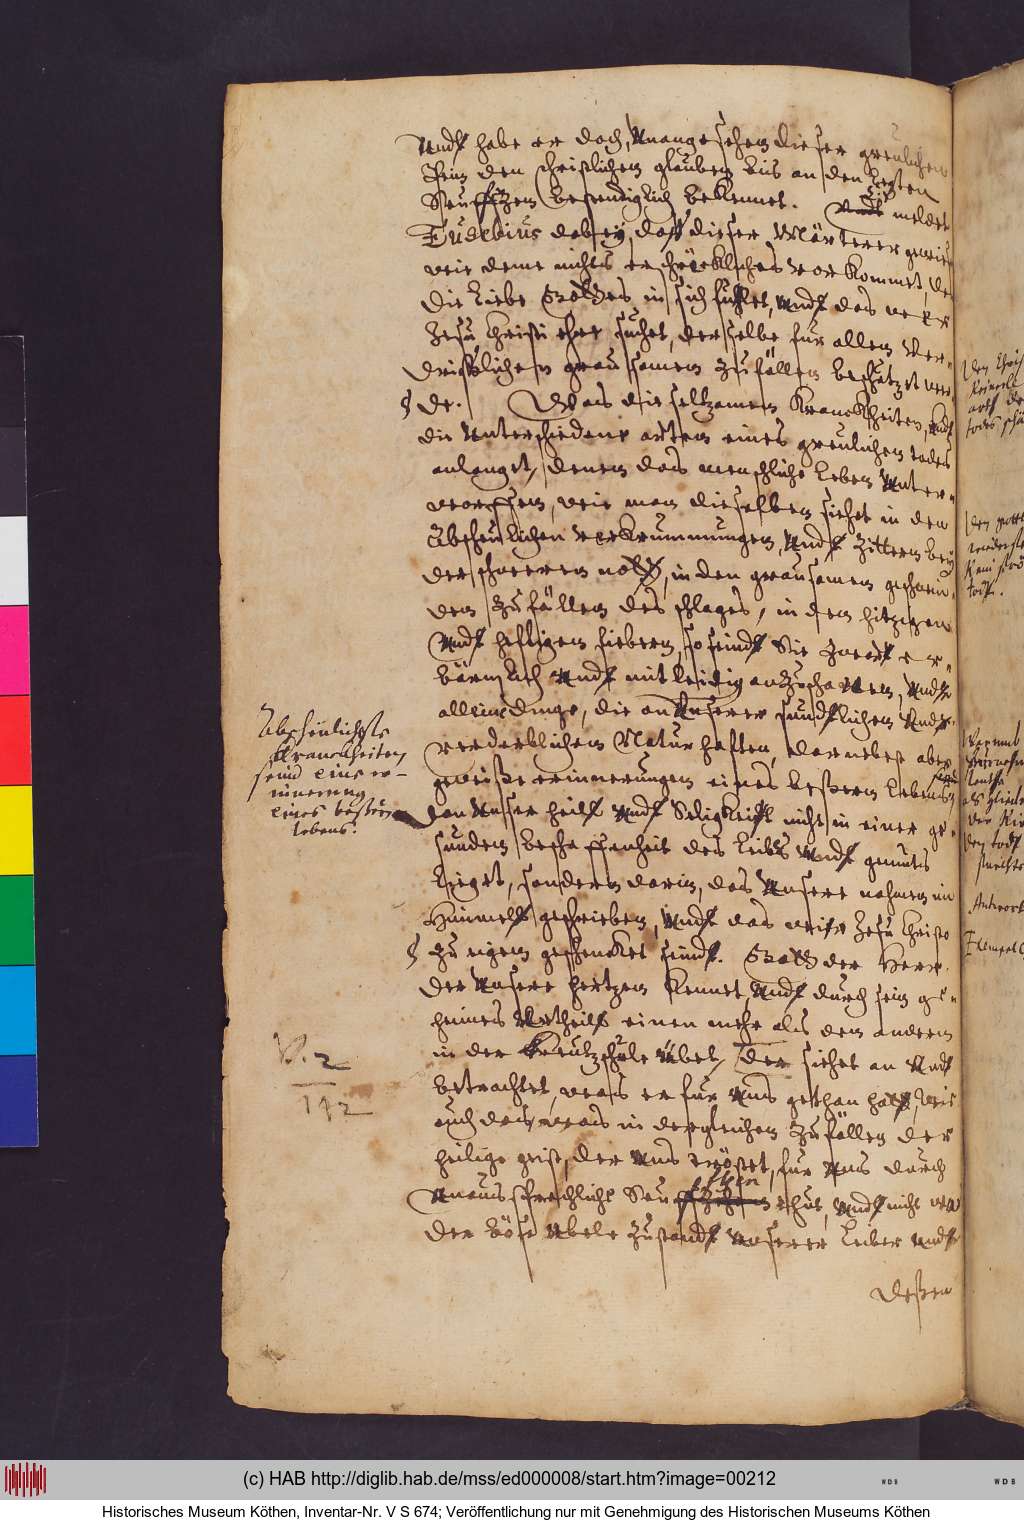 Undt habe er doch, Unangesehen dieser greulichen
Pein den christlichen glauben bis an den letzten
Seufftzen bestendiglich bekennet. meldet
Eusebius dabey, daß dieser Märterer gewiesen
wie deme nichts erschröckliches vorkommet, der
die liebe Gottes in sich fühlet, Undt das wer
Jesu Christi ehre suchet, derselbe für allen Ver-
drießlichen grausamen zufällen beschützet wer-
de. Was die seltzamen Kranckheiten, Undt
die Unterschiedene arten eines greulichen todes
anlanget, denen das menschliche leben Unter-
worffen, wie man dieselben siehet in den
Abscheulichen verkrummungen, Undt zittern bey
der schweren noth, in den grausamen geschwin-
den zufällen des schlages, in den hitzigen
Undt hefftigen fiebern, so seindt Sie zwart er-
bärmlich Undt mitleidig anzuschawen, Undt
alleine dinge, die an Unserer sündtlichen Undt
verderblichen Natur hafften, darnebest aber
gewiße erinnerungen eines beßern lebens
den Unser heill Undt Seligkeit nicht in einer ge-
sunden beschaffenheit des leibes Undt gemüts
lieget, sondern darin, das Unsere nahmen im
Himmell geschrieben, Undt das wir Jesu Christo
zu eigen geschencket sindt. Gott der Herr
der Unsere hertzen kennet, Undt durch sein ge-
heimes Urtheill einen mehr als den andern
in der Kreutzschule übet, der siehet an Undt
betrachtet, was er für Uns gethan hatt, wie
auch das, was in dergleichen zufällen der
heilige geist, der Uns tröstet, für Uns durch
Unaussprechliche Seufftzen thut, Undt nicht
der böse Ubele zustandt Unserer leiber Undt
deßen
Abscheulichste
Kranckheiten
seind eine er-
innerung
eines beßern
lebens.
V. 2
112
(c) HAB http://diglib.hab.de/mss/ed000008/start.htm?image=00212
WDB
WDB
Historisches Museum Köthen, Inventar-Nr. V S 674; Veröffentlichung nur mit Genehmigung des Historischen Museums Köthen